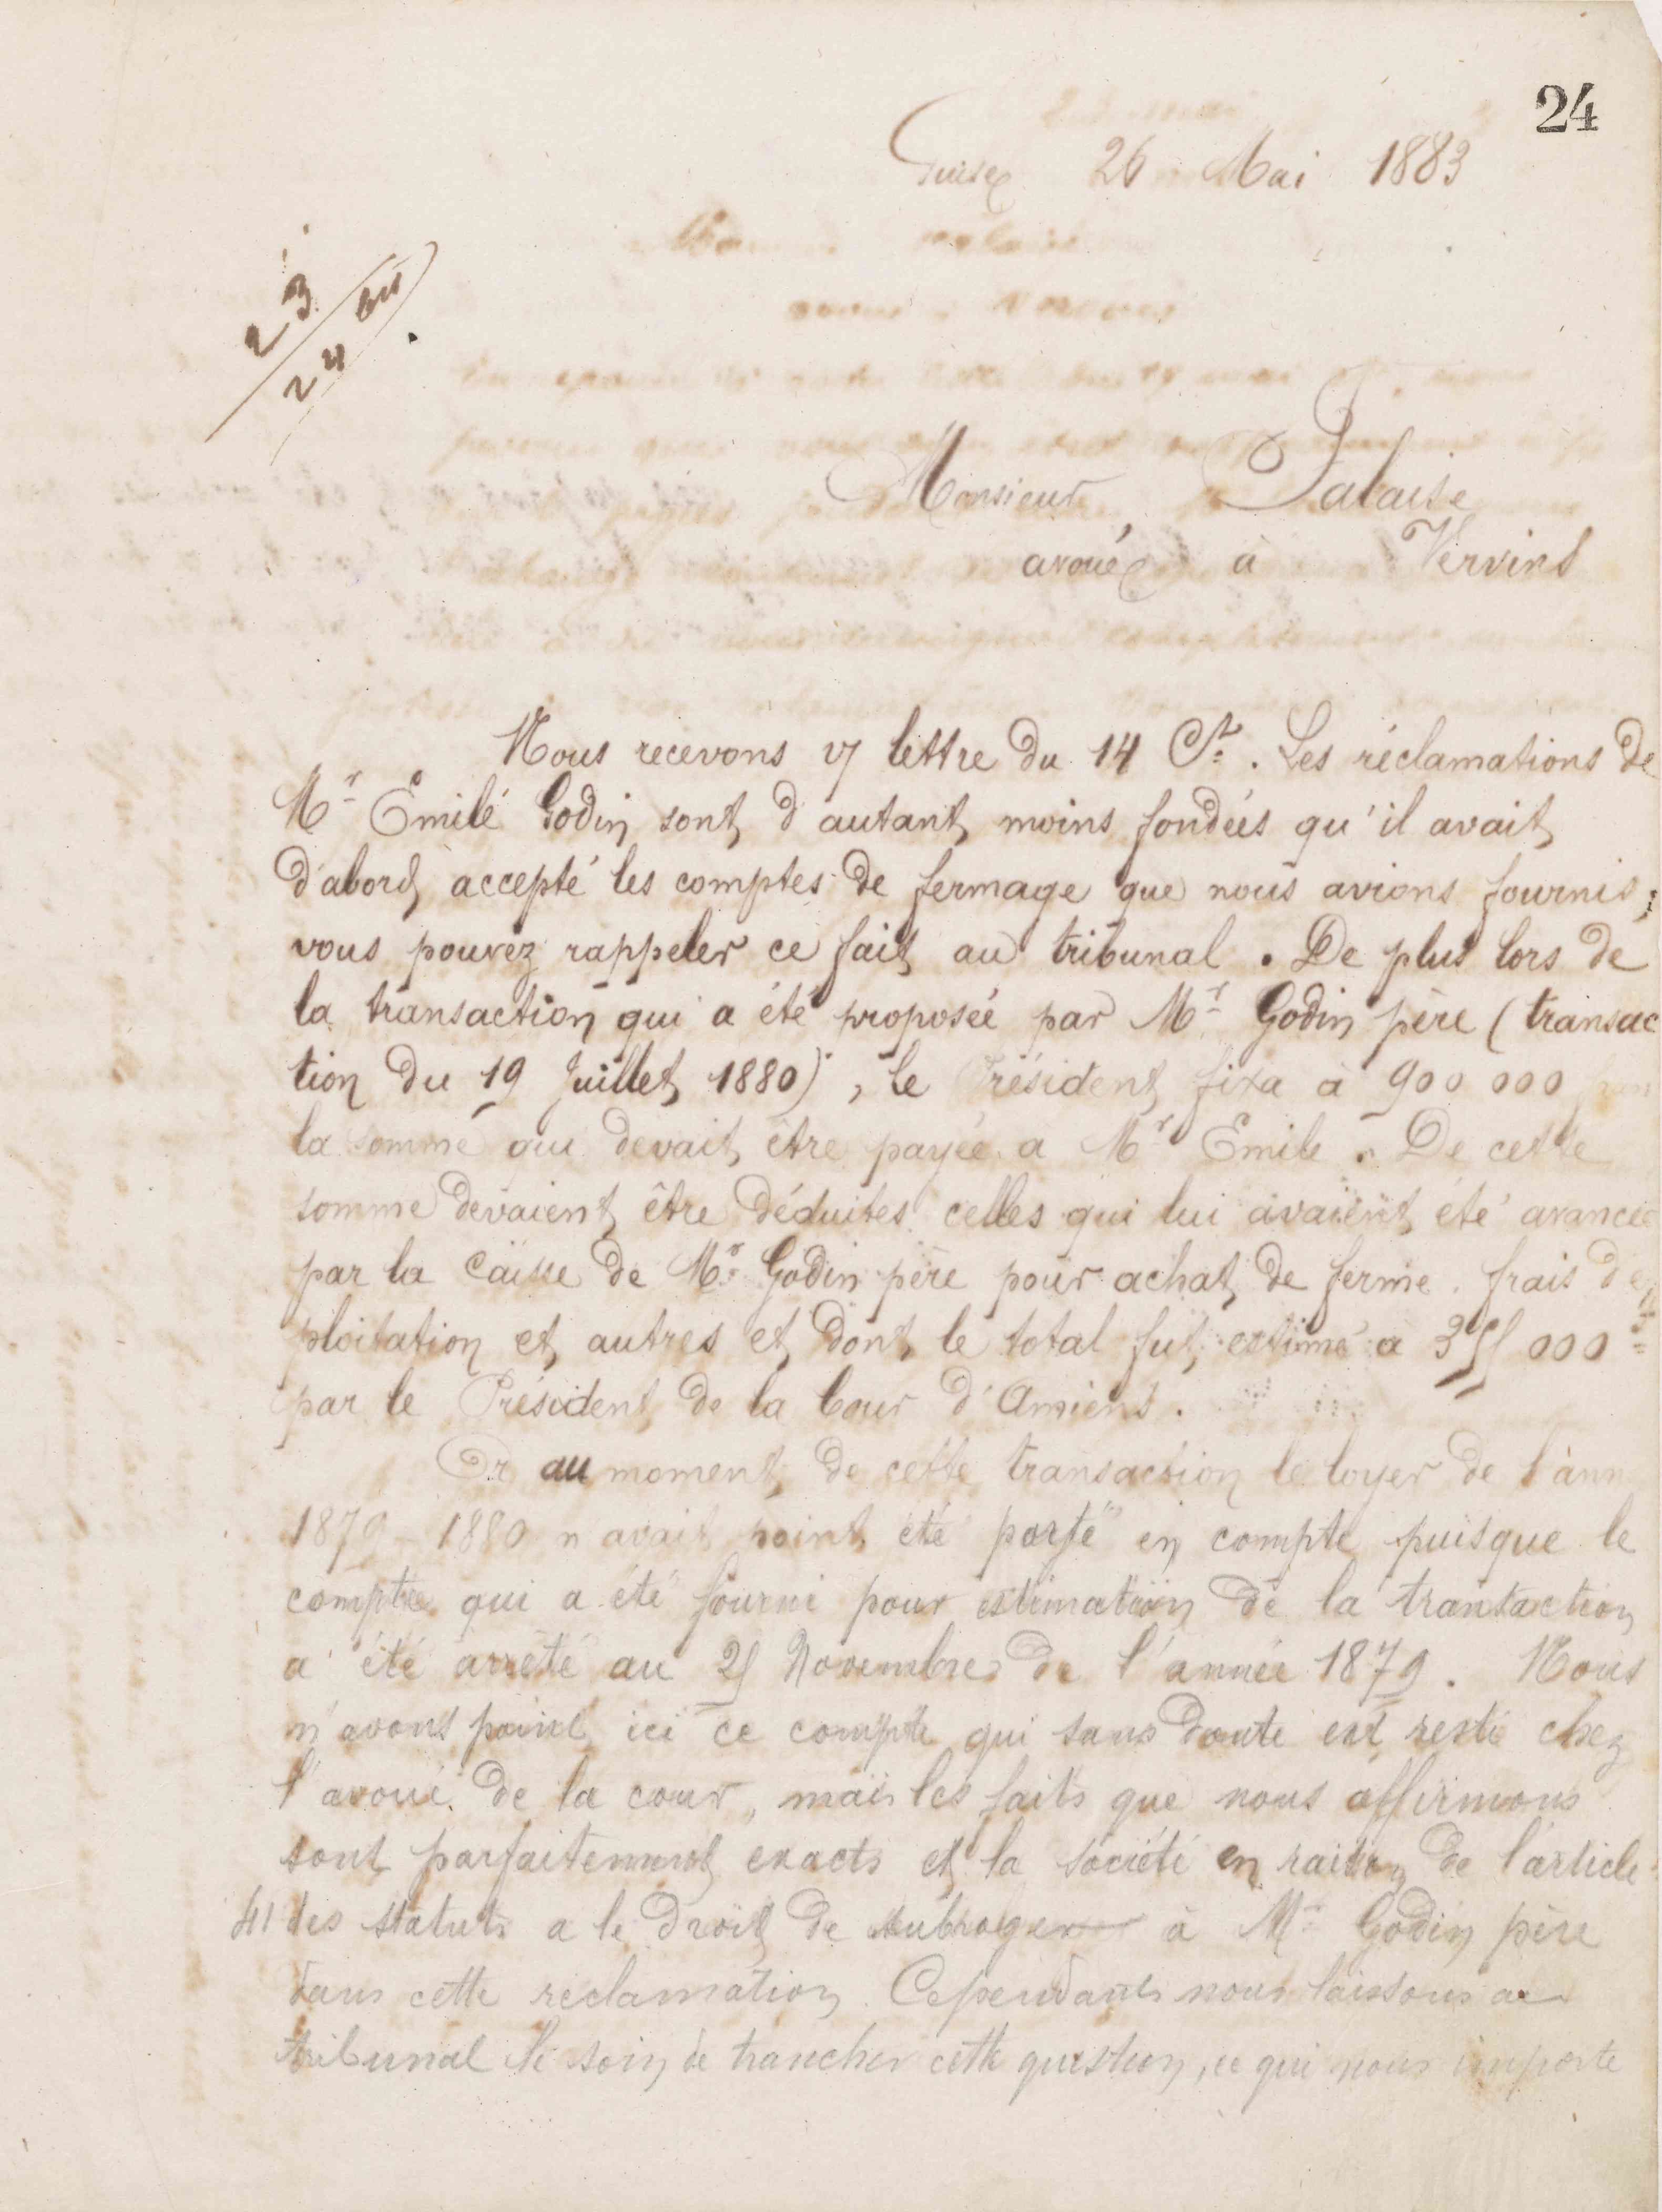 24
Guise 26 Mai 1883
23
24
Monsieur Palaise
avoué à Vervins
Nous recevons v/ lettre du 14 Ct. Les réclamations de
Mr Emile Godin sont d'autant moins fondées qu'il avait
d'abord accepté les comptes de fermage que nous avions fournis;
vous pouvez rappeler ce fait au tribunal. De plus lors de
la transaction qui a été proposée par Mr Godin père (transac
tion du 19 Juillet 1880), le Président fixa à 900 000
la somme qui devait être payée a Mr Emile. De cette
somme devaient être déduites celles qui lui avaient été avancée
par la caisse de Mr Godin père pour achat de ferme. frais d'e
ploitation et autres et dont le total fut estimé à 355 000
par le Président de la Cour d'Amiens.
Or au moment de cette transaction le loyer de l'ann
1879-1880 n'avait point été porté en compte puisque le
compte qui a été fourni pour estimation de la transaction
a été arrêté au 25 Novembre de l'année 1879. Nous
n'avons point ici ce compte qui sans doute est resté chez
l'avoué de la cour, mais les faits que nous affirmons
sont parfaitement exacts et la société en raison de l'article
41 des statuts a le droit de subroger à Mr Godin père
dans cette réclamation. Cependant nous laissons au
tribunal le soin de trancher cette question, ce qui nous importe